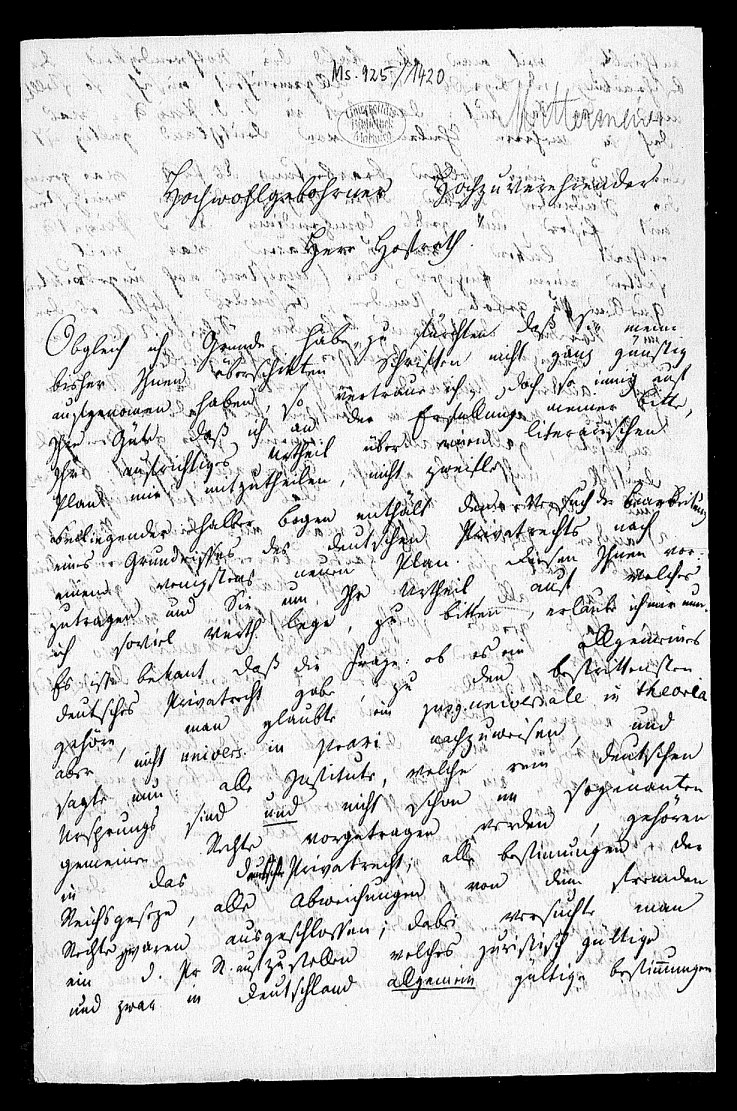 Ms. 925/1420
Universitäts
Bibliothek
Marburg
Mittermeier
Hochwohlgebohrner Hochzuverehrender
Herr Hofrath!
Obgleich ich Grunde habe, zu fürchten, daß Sie meine
bisher Ihnen überschikten Schriften nicht ganz günstig
aufgenomen haben, so vertraue ich doch so innig auf
Ihre Güte daß ich an der Erfüllung meiner Bitte,
Ihr aufrichtiges Urtheil über einen literarischen
Plan mir mitzutheilen, nicht zweifle.
Beiliegender halber Bogen enthält den Versuch der Bearbeitung
eines Grundrisses des deutschen Privatrechts nach
einem wenigstens neuen Plan. Diesen Ihnen vor-
zutragen und Sie um Ihr Urtheil auf welches
ich soviel werth lege, zu bitten, erlaube ich mir nun.
Es ist bekant, daß die Frage: ob es ein allgemeines
deutsches Privatrecht gebe, zu den bestrittensten
gehöre, man glaubte ein jus universale in theoria
aber nicht univers. in praxi nachzuweisen, und
sagte nun: alle Institute, welche rein deutschen
Ursprungs sind und nicht schon im sogenanten
gemeinen Rechte vorgetragen werden, gehören
in das deutsche Privatrecht; alle Bestimungen der
Reichsgeseze, alle Abweichungen von dem fremden
Rechte waren ausgeschlossen; dabei versuchte man
ein d. Pr. R. aufzustellen welches juristisch gültige
und zwar in Deutschland allgemein gültige Bestimungen